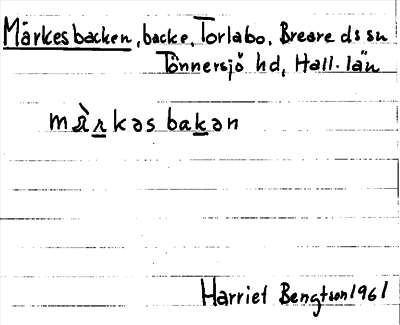 Märkesbacken, backe, Torlabo, Breare ds sn
Tönnersjö hd, Hall. län
mæ̀rkəs bakən
Harriet Bengtson 1961